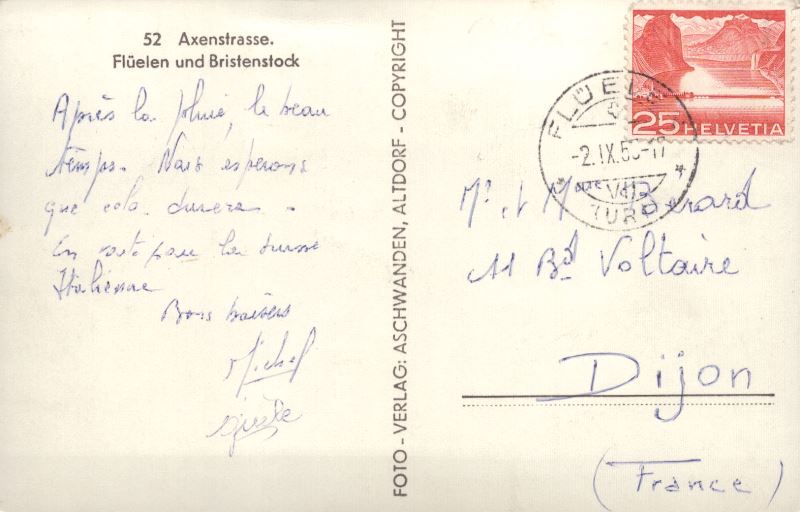 52 Axenstrasse.
Flüelen und Bristenstock
Après la pluie, le beau
temps. Nous esperons
que cela durera.
En route pour la Suisse
Italienne
Bons baisers
Michel
FOTO - VERLAG: ASCHWANDEN, ALTDORF - COPYRIGHT
25 HELVETIA
FLÜELEN
-2.IX.5
(URI)
Mr et Berard
11 Bd Voltaire
Dijon
(France)